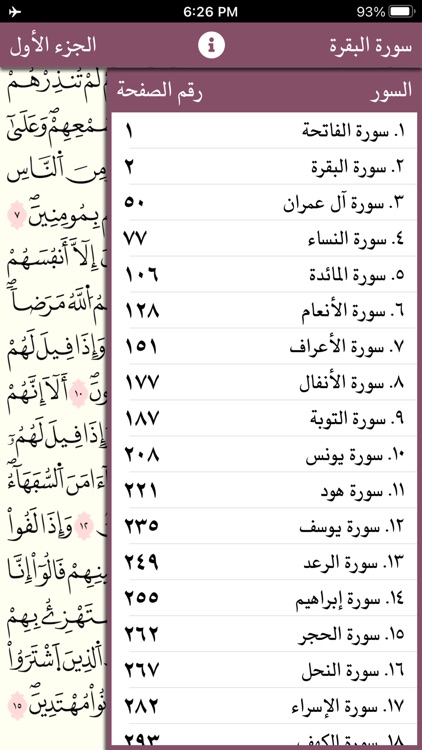 6:26 PM 93%
سورة البقرة الجزء الأول
السور رقم الصفحة
١. سورة الفاتحة ١
٢. سورة البقرة ٢
٣. سورة آل عمران ٥٠
٤. سورة النساء ٧٧
٥. سورة المائدة ١٠٦
٦. سورة الأنعام ١٢٨
٧. سورة الأعراف ١٥١
٨. سورة الأنفال ١٧٧
٩. سورة التوبة ١٨٧
١٠. سورة يونس ٢٠٨
١١. سورة هود ٢٢١
١٢. سورة يوسف ٢٣٥
١٣. سورة الرعد ٢٤٩
١٤. سورة إبراهيم ٢٥٥
١٥. سورة الحجر ٢٦٢
١٦. سورة النحل ٢٦٧
١٧. سورة الإسراء ٢٨٢
١٨. سورة الكهف ٢٩٣
لَمْ تُنذِرْهُمْ
وَعَلَىٰ
مِنَ اَ۬لنَّاسِ
بِمُومِنِينَۖ ٧
إِلَّآ أَنفُسَهُمْ
اُ۬للَّهُ مَرَضاٗۖ
وَإِذَا قِيلَ لَهُمْ
١٠ أَلَآ إِنَّهُمْ
وَإِذَا قِيلَ لَهُمُۥٓ
ءَامَنَ اَ۬لسُّفَهَآءُۖ
١٢ وَإِذَا لَقُواْ
قَالُوٓاْ إِنَّا
بِهِمْ
اَ۬لذِينَ اَ۪شْتَرَوُاْ
مُهْتَدِينَۖ ١٥